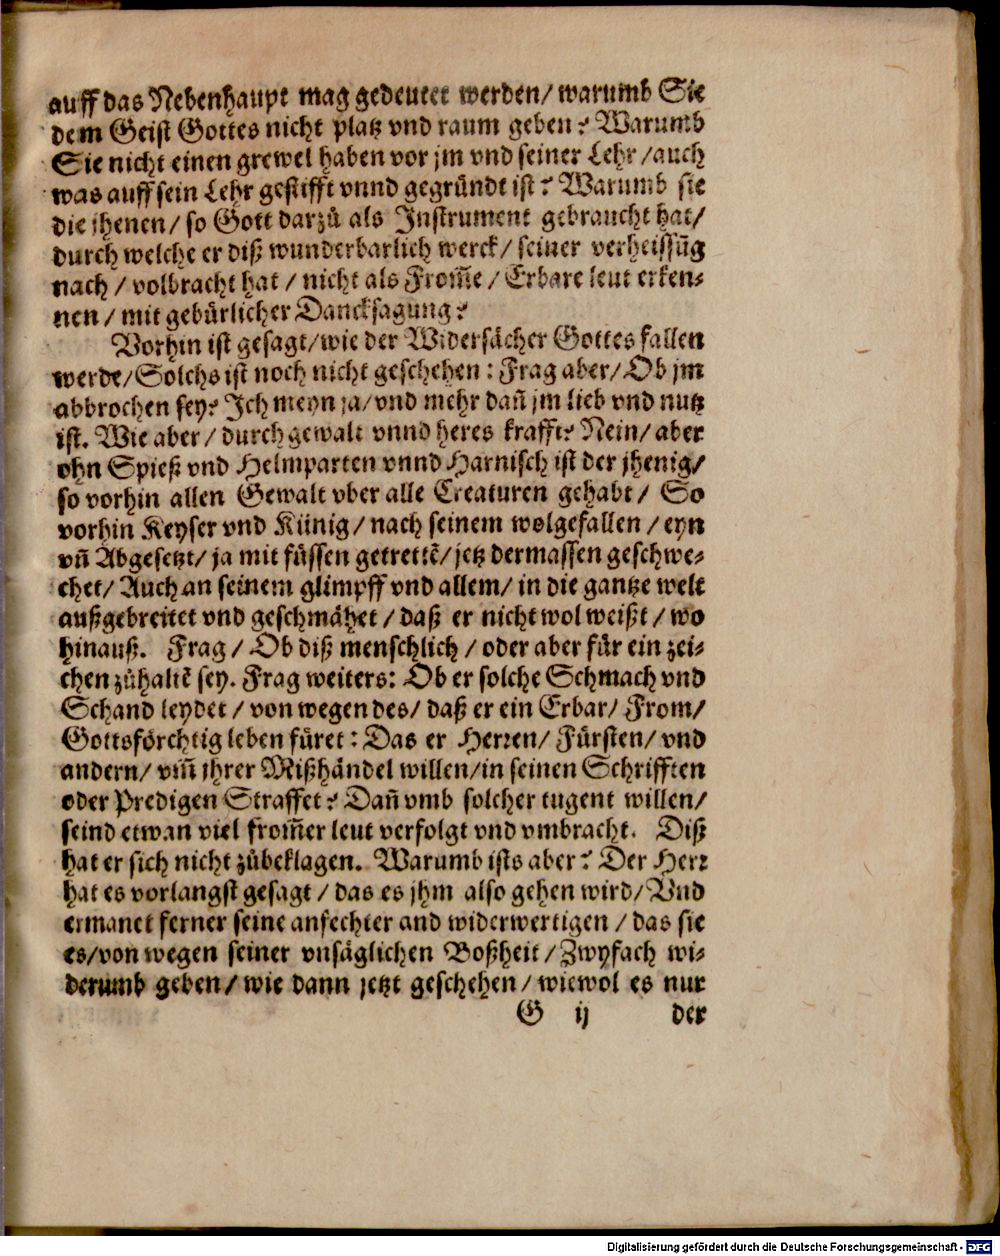 auff das Nebenhaupt mag gedeutet werden/ warumb Sie
dem Geist Gottes nicht platz vnd raum geben? Warumb
Sie nicht einen grewel haben vor jm vnd seiner Lehr /auch
was auff sein Lehr gestifft vnnd gegründt ist? Warumb sie
die jhenen/ so Gott darzů als Instrument gebraucht hat/
durch welche er diß wunderbarlich werck/ seiner verheissūg
nach / volbracht hat / nicht als From̄e / Erbare leut erken⸗
nen / mit gebürlicher Dancksagung?
Vorhin ist gesagt/wie der Widersächer Gottes fallen
werde/Solchs ist noch nicht geschehen: Frag aber/ Ob jm
abbrochen sey? Ich meyn ja/ vnd mehr dañ jm lieb vnd nutz
ist. Wie aber / durch gewalt vnnd heres krafft? Nein/ aber
ohn Spieß vnd Helmparten vnnd Harnisch ist der jhenig/
so vorhin allen Gewalt vber alle Creaturen gehabt / So
vorhin Keyser vnd Künig / nach seinem wolgefallen / eyn
vñ Abgesetzt/ ja mit füssen getrettē/ jetz dermassen geschwe⸗
chet/ Auch an seinem glimpff vnd allem/ in die gantze welt
außgebreitet vnd geschmähet / daß er nicht wol weißt / wo
hinauß. Frag / Ob diß menschlich / oder aber für ein zei⸗
chen zůhaltē sey. Frag weiters: Ob er solche Schmach vnd
Schand leydet / von wegen des/ daß er ein Erbar/ From/
Gottsförchtig leben füret: Das er Herren/ Fürsten/ vnd
andern/ vm̄ jhrer Mißhändel willen/in seinen Schrifften
oder Predigen Straffet? Dañ vmb solcher tugent willen/
seind etwan viel from̄er leut verfolgt vnd vmbracht. Diß
hat er sich nicht zůbeklagen. Warumb ists aber? Der Herr
hat es vorlangst gesagt / das es jhm also gehen wird/ Vnd
ermanet ferner seine anfechter and widerwertigen / das sie
es/von wegen seiner vnsäglichen Boßheit / Zwyfach wi⸗
derumb geben/ wie dann jetzt geschehen/ wiewol es nur
G ij der
Digitalisierung gefördert durch die Deutsche Forschungsgemeinschaft - DFG